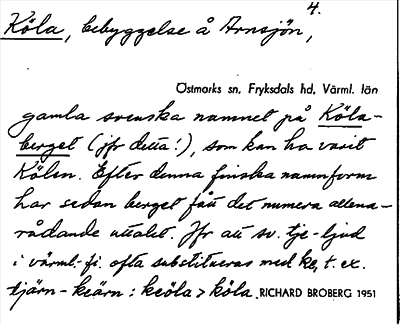 Köla, bebyggelse å Arnsjön, 4.
Östmarks sn. Fryksdals hd. Värml. län
gamla svenska namnet på Köla-
berget (jfr detta!), som kan ha varit
Kölen. Efter denna finska namnform
har sedan berget fått det numera allena-
rådande uttalet. Jfr att sv. tje-ljud
i värml.-fi. ofta substitueras med ke, t. ex.
tjärn - keärn : keöla > köla.
RICHARD BROBERG 1951